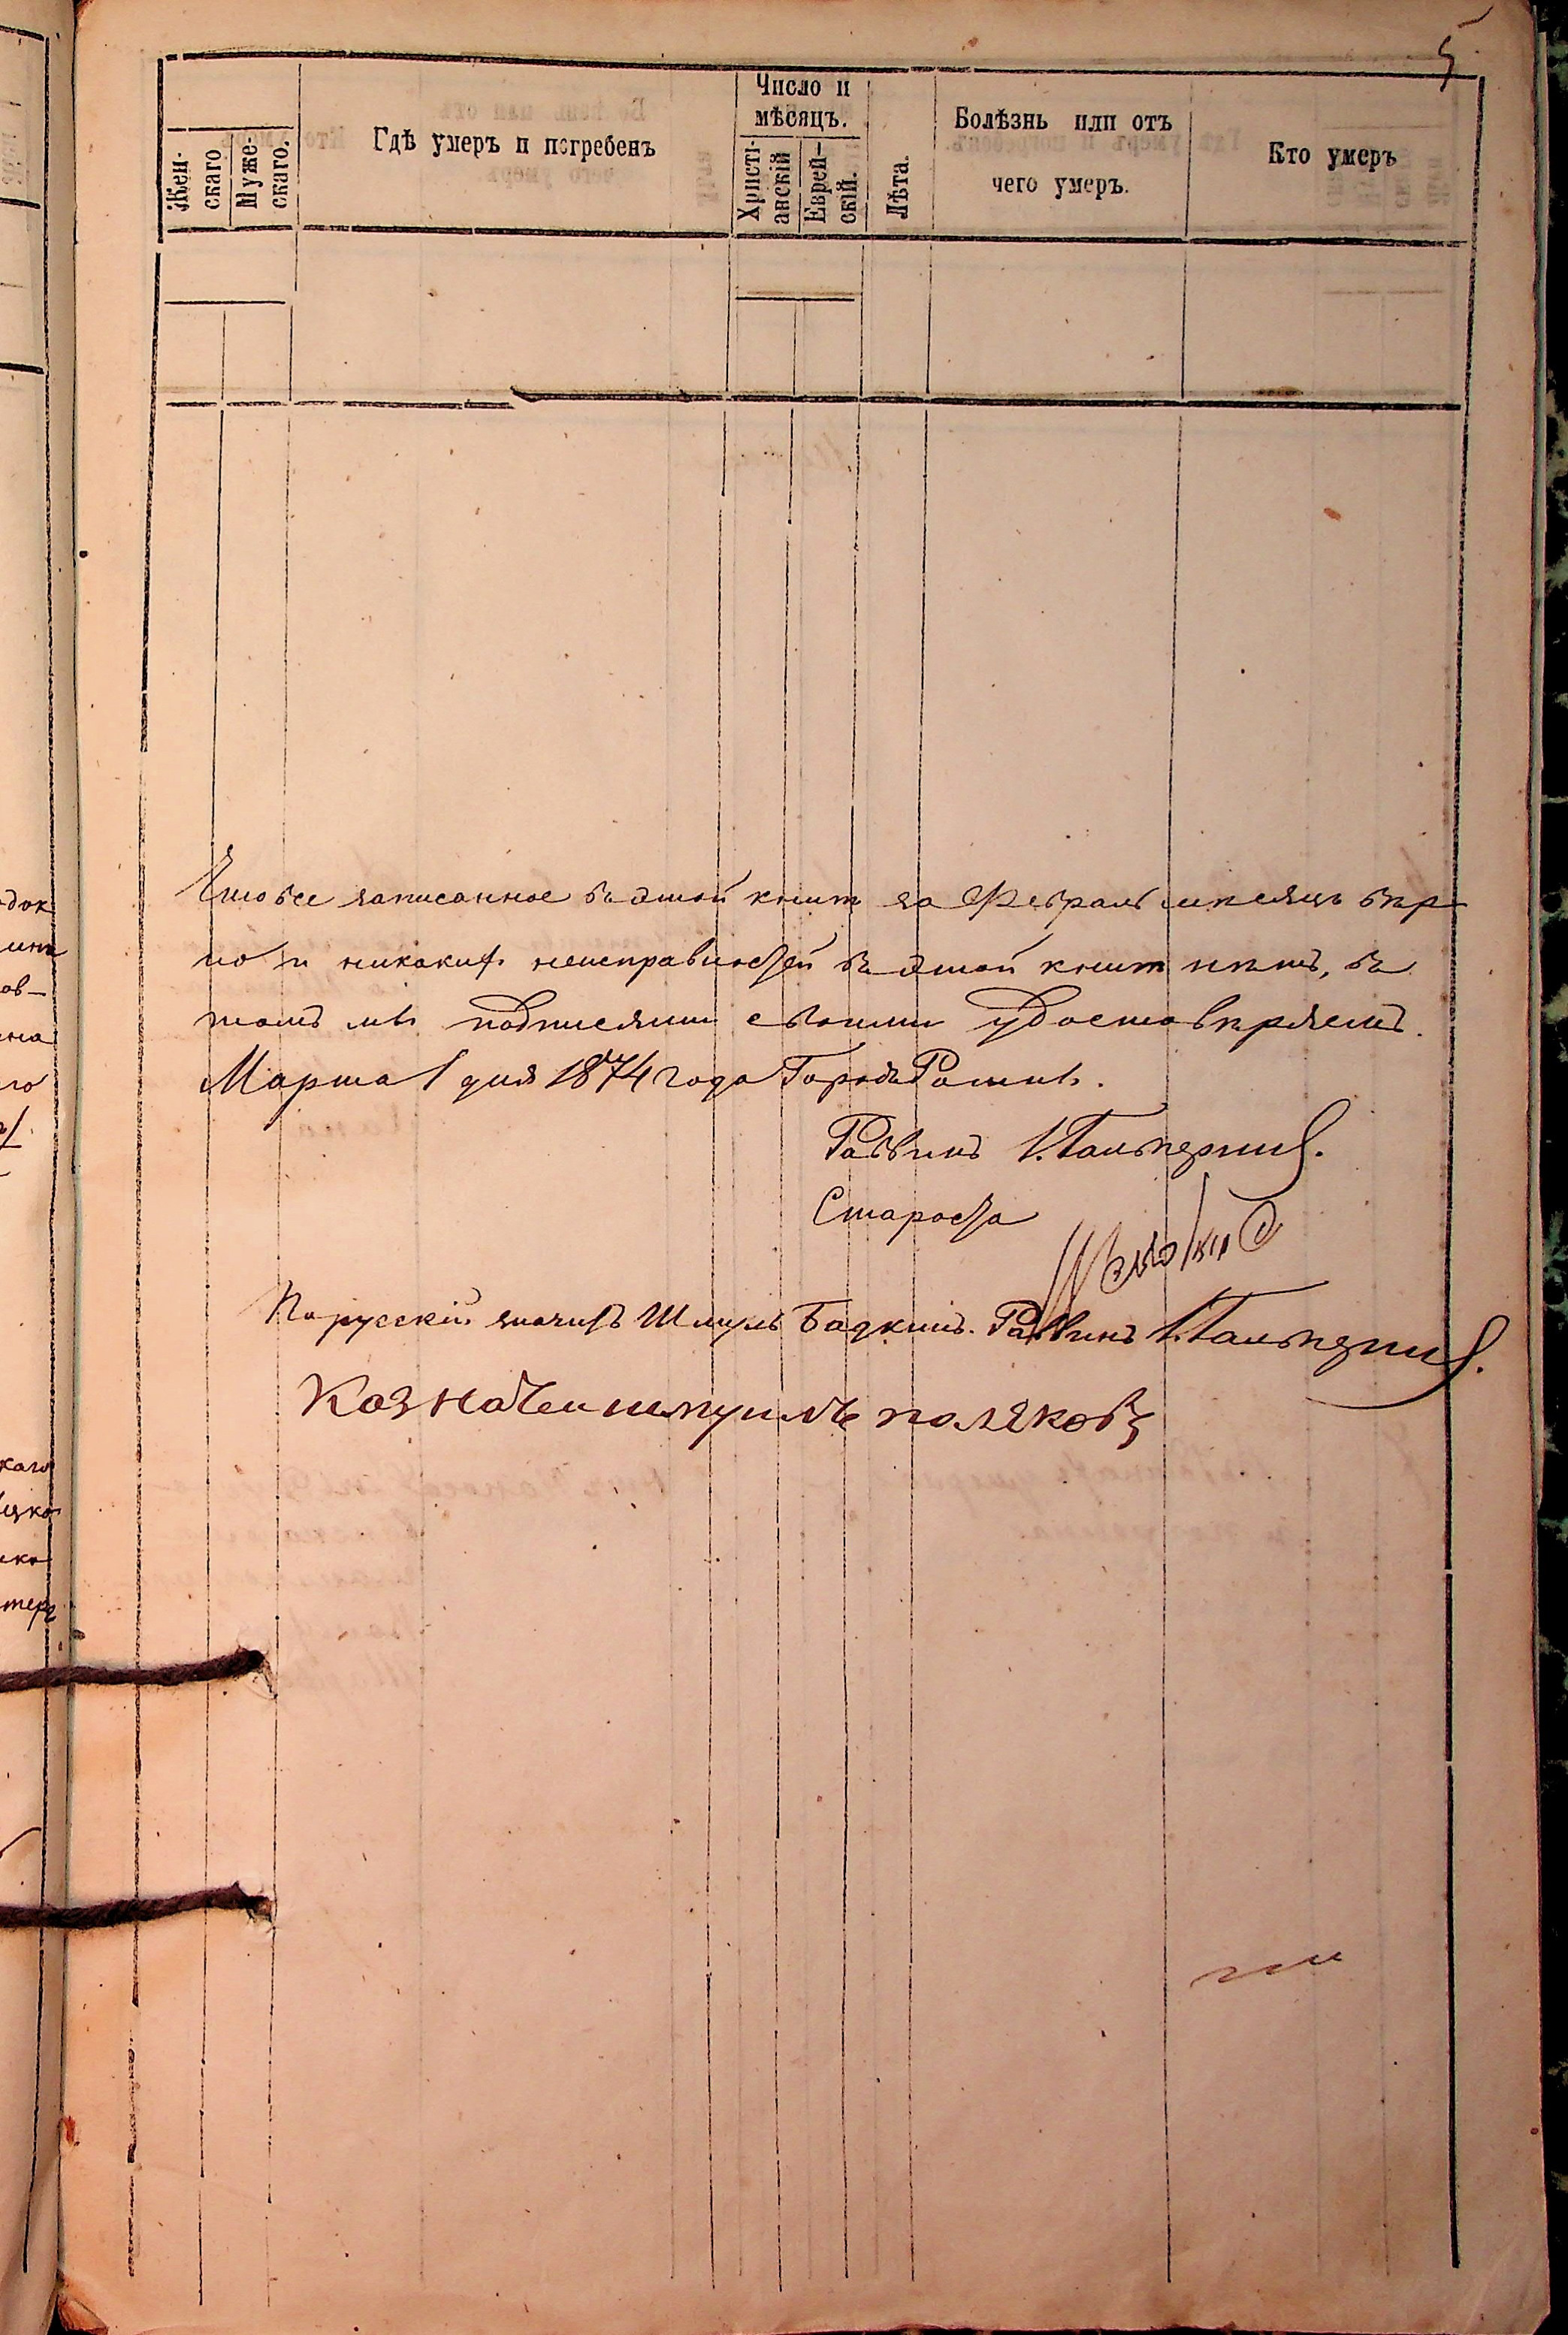 5
Жен-
скаго
Муже-
скаго.
Гдѣ умеръ и погребенъ
Число и
мѣсяцъ.
Христі-
анскій
Еврей-
скій.
Лѣта.
Болѣзнь или отъ
чего умеръ.
Кто умеръ
Что все записанное въ этой книгѣ за Февраль мѣсяцъ вѣр-
но и никакихъ неисправностей въ этой книгѣ нѣтъ, въ
томъ мы подписями своими удостовѣряемъ.
Марта 1 дня 1874 года Городъ Ромны.
Раввинъ И. Гальпернъ.
Староста
По русскій значитъ Шмуль Бадкинъ. Раввинъ И. Гальпернъ.
Казначеи шмуиль поляковъ